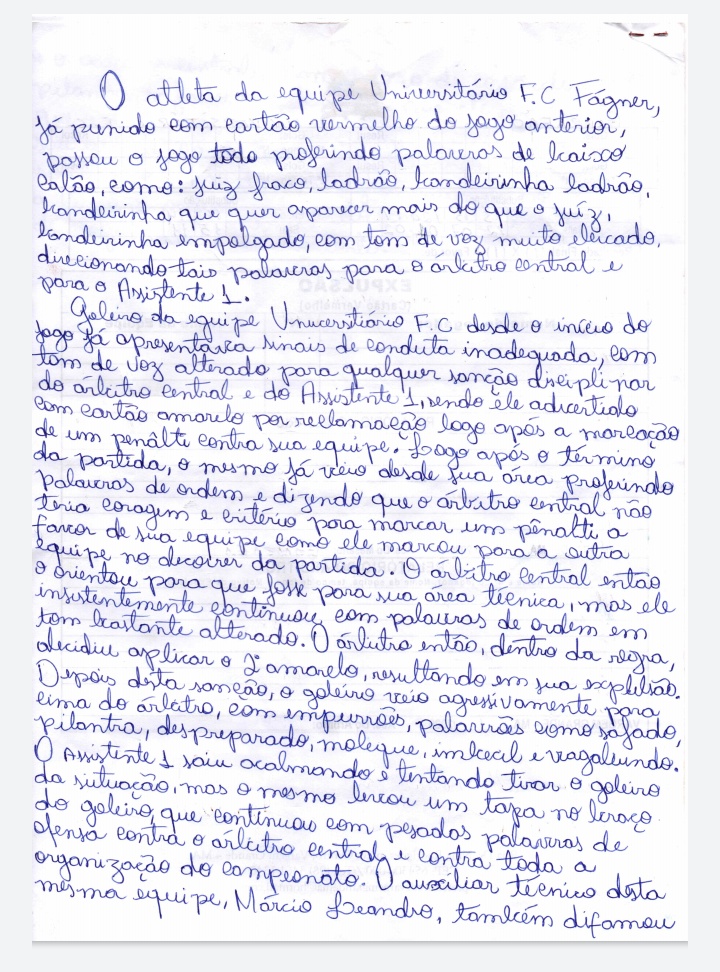 O atleta da equipe Universitário F.C Fágner,
já punido com cartão vermelho do jogo anterior,
passou o jogo todo proferindo palavras de baixo
calão, como: juiz fraco, ladrão, bandeirinha ladrão,
bandeirinha que quer aparecer mais do que o juíz,
bandeirinha empolgado, com tom de voz muito elevado,
direcionando tais palavras para o árbitro central e
para o Assistente 1.
Goleiro da equipe Universtiário F.C desde o início do
jogo já apresentava sinais de conduta inadequada, com
tom de voz alterado para qualquer sanção disciplinar
do árbitro central e do Assistente 1, sendo ele advertido
com cartão amarelo por reclamação logo após a marcação
de um penâlti contra sua equipe. Logo após o término
da partida, o mesmo já veio desde sua área proferindo
palavras de ordem e dizendo que o árbitro central não
teria coragem e critério para marcar um pênalti a
favor de sua equipe como ele marcou para a outra
equipe no decorrer da partida. O árbitro central então
o orientou para que fosse para sua área técnica, mas ele
insistentemente continuou com palavras de ordem em
tom bastante alterado. O árbitro então, dentro da regra,
decidiu aplicar o 2º amarelo, resultando em sua explulsão.
Depois desta sanção, o goleiro veio agressivamente para
cima do árbitro, com empurrões, palavrões como safado,
pilantra, despreparado, moleque, imbecil e vagabundo.
O Assistente 1 saiu acalmando e tentando tirar o goleiro
da situação, mas o mesmo levou um tapa no braço
do goleiro, que continuou com pesadas palavras de
ofensa contra o árbitro central e contra toda a
organização do campeonato. O auxiliar técnico desta
mesma equipe, Márcio Leandro, também difamou